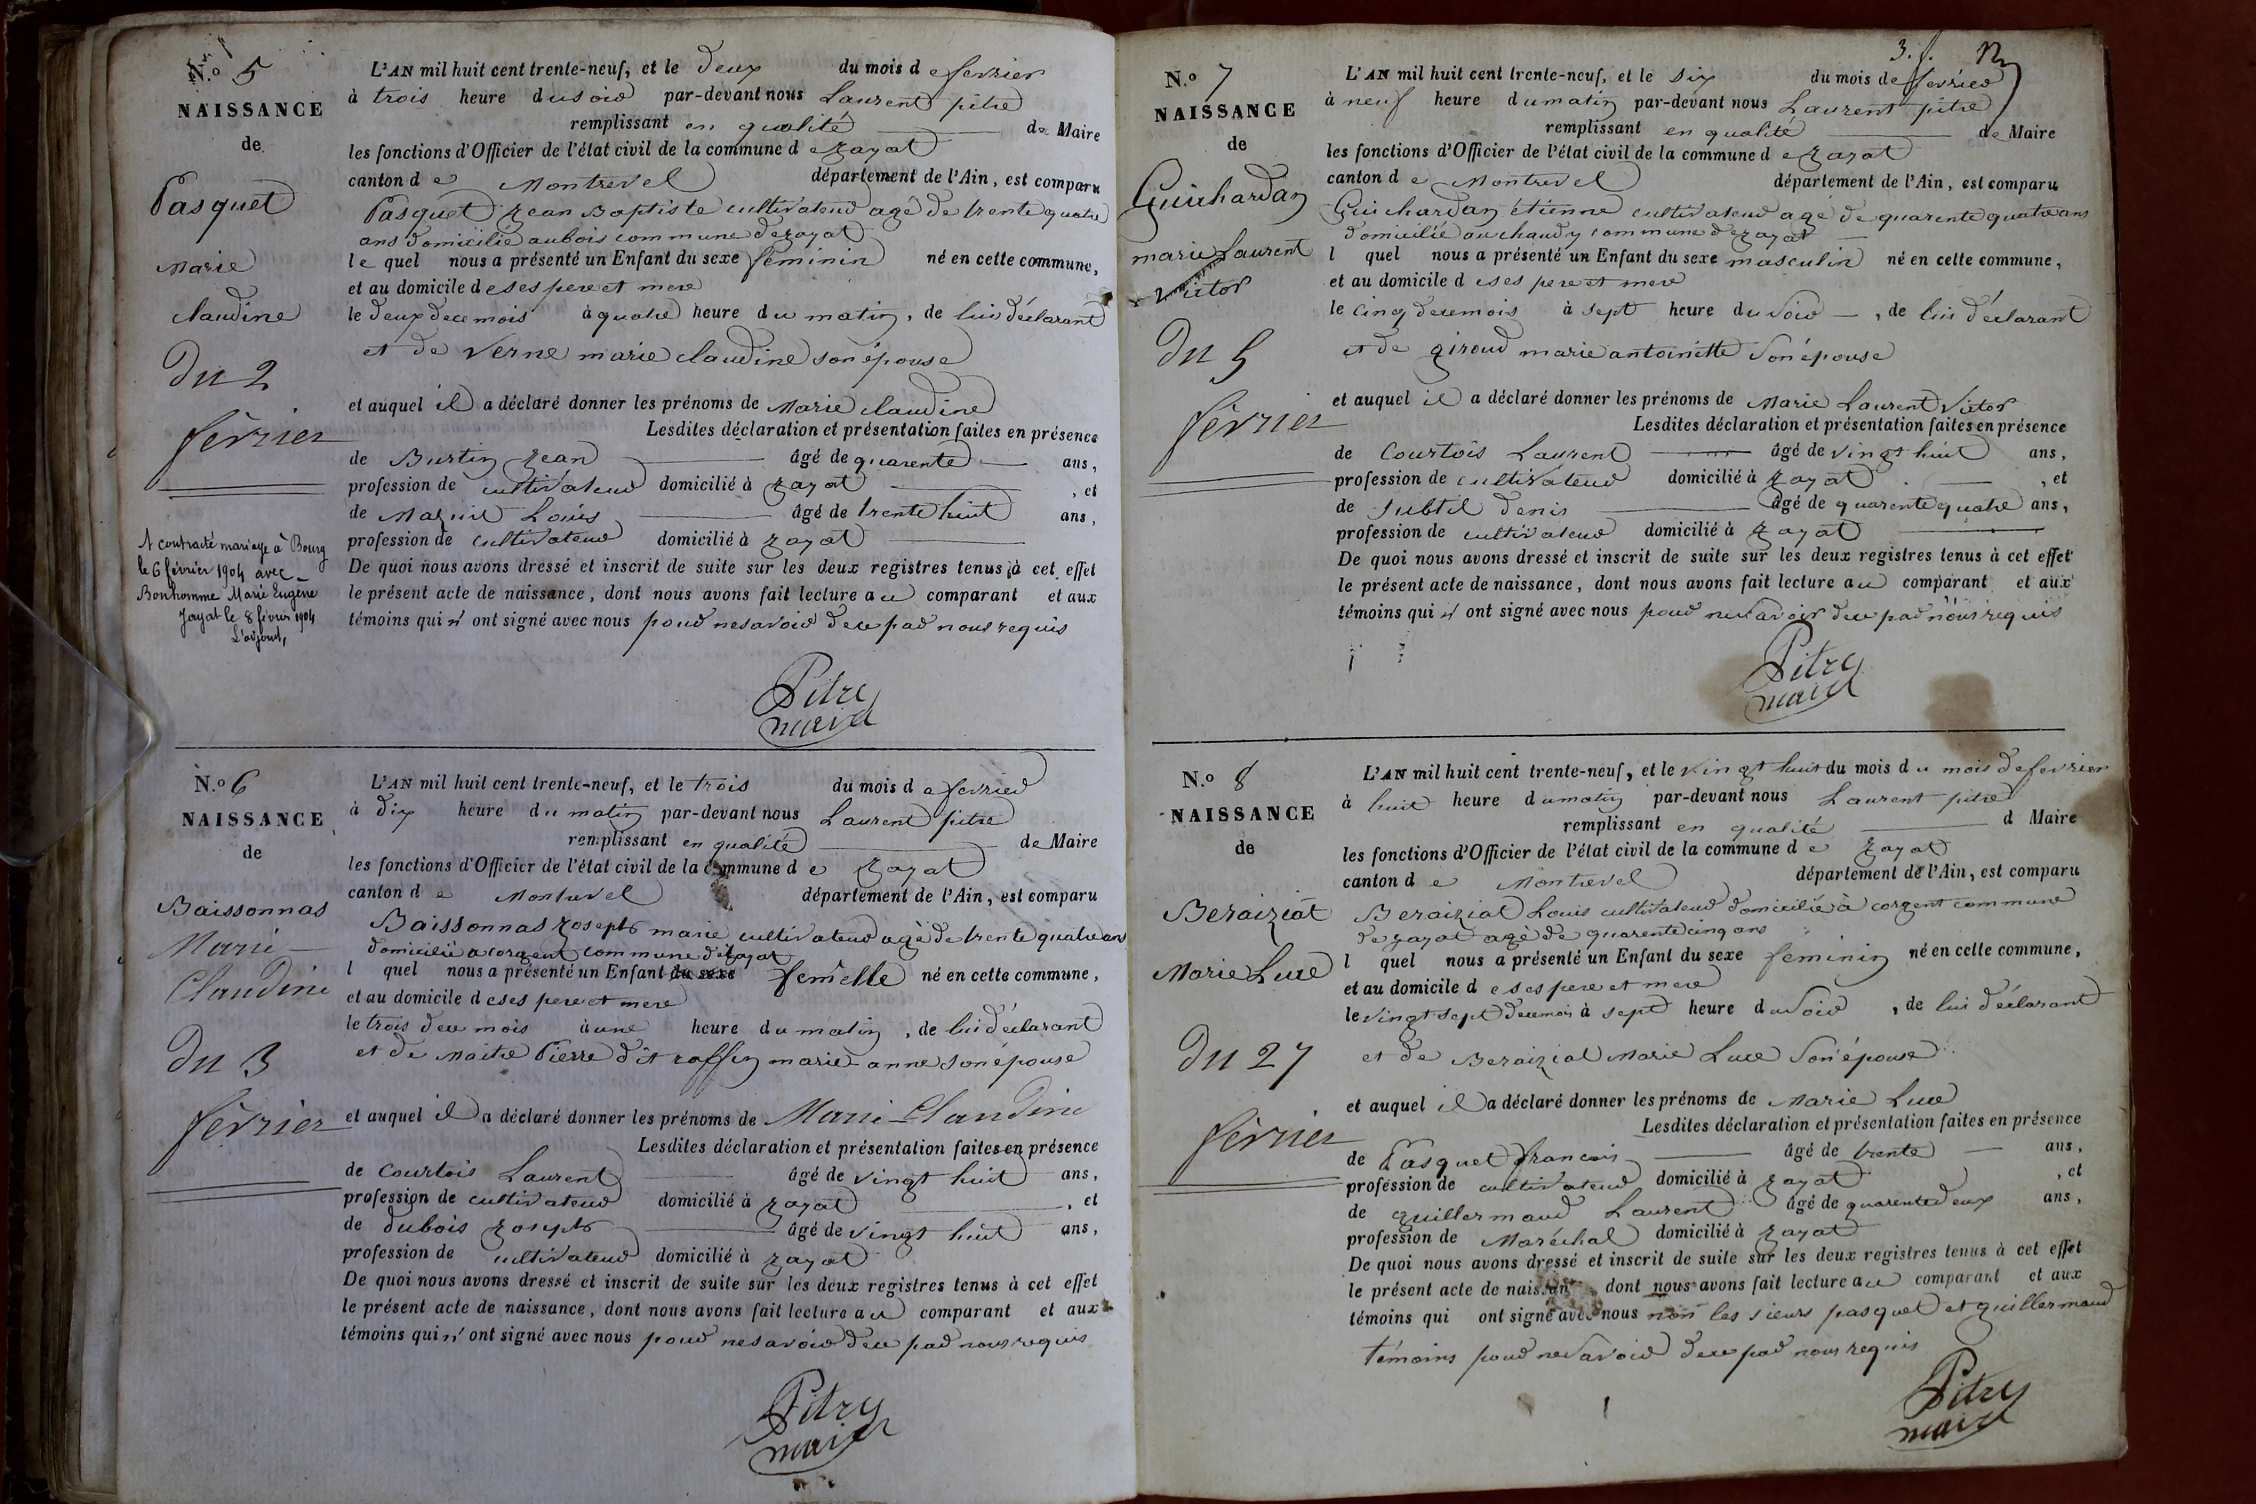 N.º 5
NAISSANCE
de
Pasquet
Marie
claudine
du 2
fevrier
A contracté mariage à Bourg
le 6 février 1904 avec
Bonhomme Marie Eugène
Jayat le 8 février 1904
L'adjoint,
L'AN mil huit cent trente-neuf, et le deux du mois de fevrier
à trois heure du soir par-devant nous Laurent pitre
remplissant en qualité de Maire
les fonctions d'Officier de l'état civil de la commune de Jayat
canton de Montrevel département de l'Ain, est comparu
Pasquet Jean Baptiste cultivateur agé de trente quatre
ans domicilié au bois commune de jayat
le quel nous a présenté un Enfant du sexe féminin né en cette commune,
et au domicile de ses pere et mere
le deux de ce mois à quatre heure du matin, de lui déclarant
et de Verne marie claudine son épouse
et auquel il a déclaré donner les prénoms de Marie claudine
Lesdites déclaration et présentation faites en présence
de Burtin Jean âgé de quarente ans,
profession de cultivateur domicilié à Jayat, et
de Louis âgé de trente huit ans,
profession de cultivateur domicilié à Jayat
De quoi nous avons dressé et inscrit de suite sur les deux registres tenus à cet effet
le présent acte de naissance, dont nous avons fait lecture au comparant et aux
témoins qui n' ont signé avec nous pour ne savoir de ce par nous requis
Pitre
maire
N.º 6
NAISSANCE
de
Baissonnas
Marie
Claudine
du 3
fevrier
L'AN mil huit cent trente-neuf, et le trois du mois de fevrier
à dix heure du matin par-devant nous Laurent pitre
remplissant en qualité de Maire
les fonctions d'Officier de l'état civil de la commune de Jayat
canton de Montrevel département de l'Ain, est comparu
Baissonnas Joseph marie cultivateur agé de trente quatre ans
domicilié a corgent commune de jayat
l quel nous a présenté un Enfant du sexe femelle né en cette commune,
et au domicile de ses pere et mere
le trois de ce mois à une heure du matin, de lui déclarant
et de Maitre Pierre dit raffin marie anne son épouse
et auquel il a déclaré donner les prénoms de Marie Claudine
Lesdites déclaration et présentation faites en présence
de Courtois Laurent âgé de vingt huit ans,
profession de cultivateur domicilié à Jayat, et
de dubois Joseph âgé de vingt huit ans,
profession de cultivateur domicilié à Jayat
De quoi nous avons dressé et inscrit de suite sur les deux registres tenus à cet effet
le présent acte de naissance, dont nous avons fait lecture au comparant et aux
témoins qui n' ont signé avec nous pour ne savoir de ce par nous requis
Pitre
maire
3. f.
N.º 7
NAISSANCE
de
Guichardan
marie Laurent
Victor
du 5
fevrier
L'AN mil huit cent trente-neuf, et le six du mois de fevrier
à neuf heure du matin par-devant nous Laurent pitre
remplissant en qualité de Maire
les fonctions d'Officier de l'état civil de la commune de Jayat
canton de Montrevel département de l'Ain, est comparu
Guichardan étienne cultivateur agé de quarente quatre ans
domicilié au chaudy commune de jayat
l quel nous a présenté un Enfant du sexe masculin né en cette commune,
et au domicile de ses pere et mere
le Cinq de ce mois à sept heure du soir, de lui déclarant
et de giroud marie antoinette son épouse
et auquel il a déclaré donner les prénoms de Marie Laurent Victor
Lesdites déclaration et présentation faites en présence
de Courtois Laurent âgé de vingt huit ans,
profession de cultivateur domicilié à Jayat, et
de Subtil denis âgé de quarente quatre ans,
profession de cultivateur domicilié à Jayat
De quoi nous avons dressé et inscrit de suite sur les deux registres tenus à cet effet
le présent acte de naissance, dont nous avons fait lecture au comparant et aux
témoins qui n' ont signé avec nous pour ne savoir de ce par nous requis
Pitre
maire
N.º 8
NAISSANCE
de
Beraiziat
Marie Luce
du 27
fevrier
L'AN mil huit cent trente-neuf, et le vingt huit du mois du mois de fevrier
à huit heure du matin par-devant nous Laurent pitre
remplissant en qualité d Maire
les fonctions d'Officier de l'état civil de la commune de Jayat
canton de Montrevel département de l'Ain, est comparu
Beraiziat Louis cultivateur domicilié à corgent commune
de jayat agé de quarente cinq ans
l quel nous a présenté un Enfant du sexe feminin né en cette commune,
et au domicile de ses pere et mere
le vingt sept de ce mois à sept heure du soir, de lui déclarant
et de Beraizial Marie Luce son épouse
et auquel il a déclaré donner les prénoms de Marie Luce
Lesdites déclaration et présentation faites en présence
de Pasquet francois âgé de trente ans,
profession de cultivateur domicilié à Jayat, et
de guillermaud Laurent âgé de quarente deux ans,
profession de Maréchal domicilié à Jayat
De quoi nous avons dressé et inscrit de suite sur les deux registres tenus à cet effet
le présent acte de naissan dont nous avons fait lecture au comparant et aux
témoins qui ont signé avec nous non les sieurs pasquet et guillermaud
témoins pour ne savoir de ce par nous requis
Pitre
maire